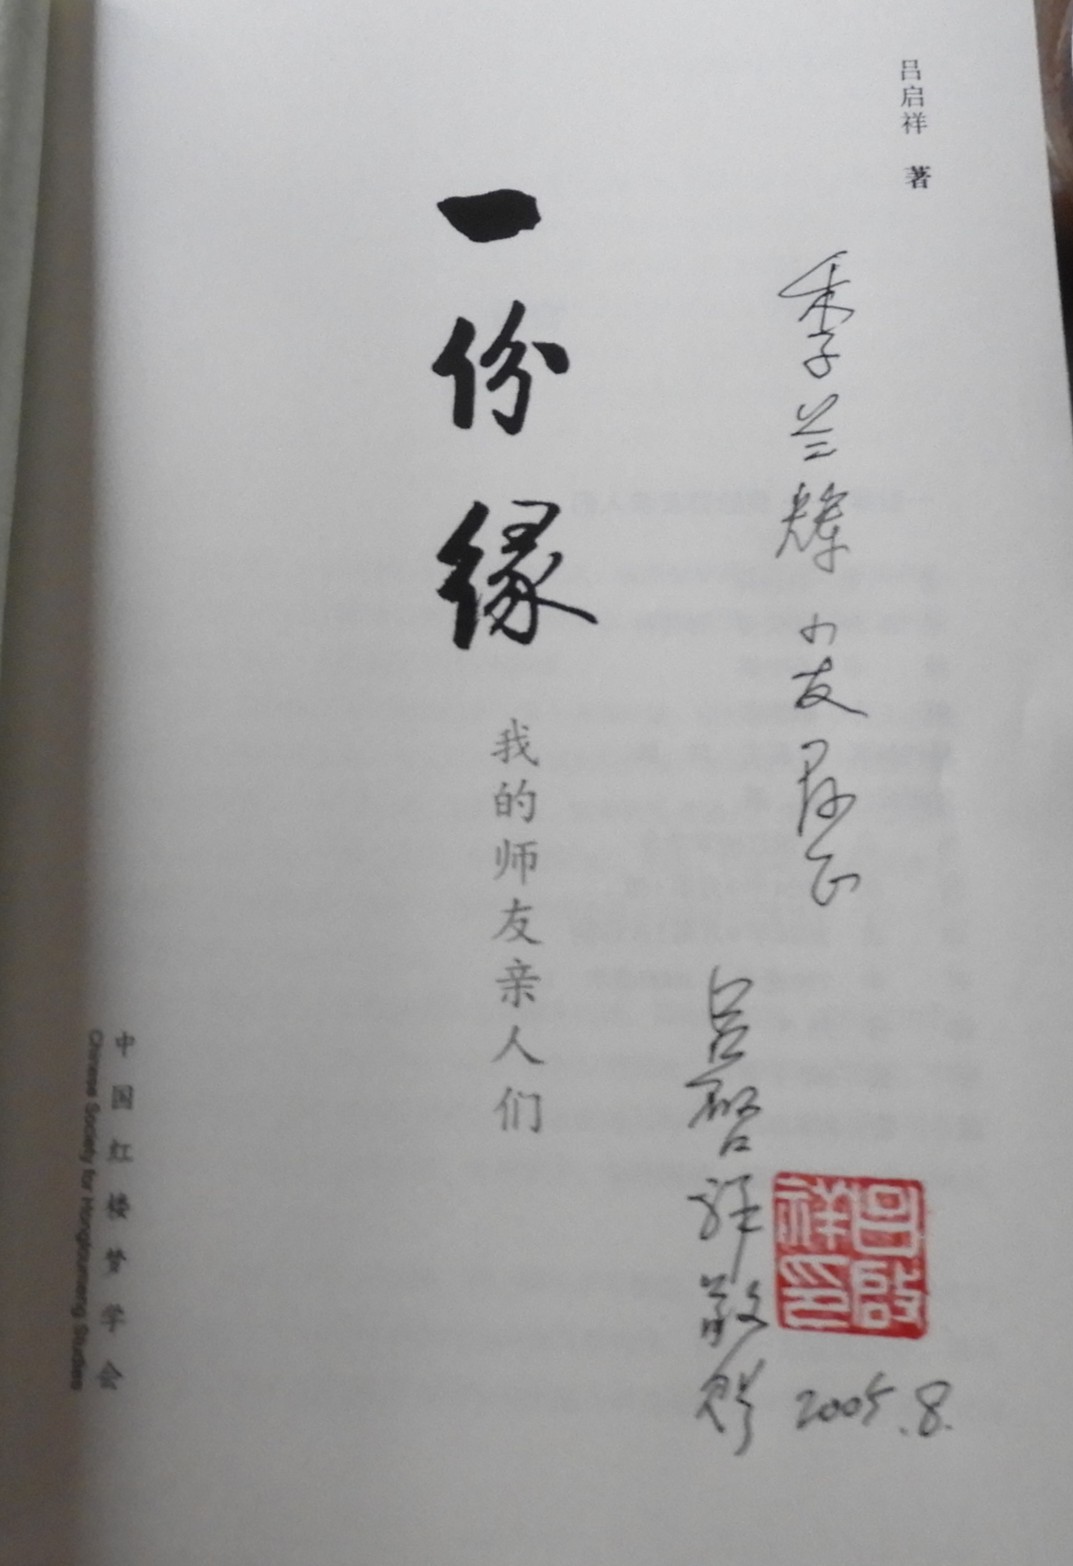 吕启祥 著
季兰辉小友存正
吕启祥敬赠
2005.8.
吕启祥印
一份缘
我的师友亲人们
中国红楼梦学会
Chinese Society for Hongloumeng Studies